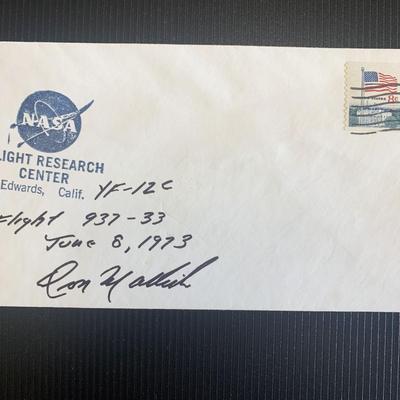 NASA
LIGHT RESEARCH
CENTER
Edwards, Calif. YF-12C
Flight 937-33
June 8, 1973
Don Mallick
8c